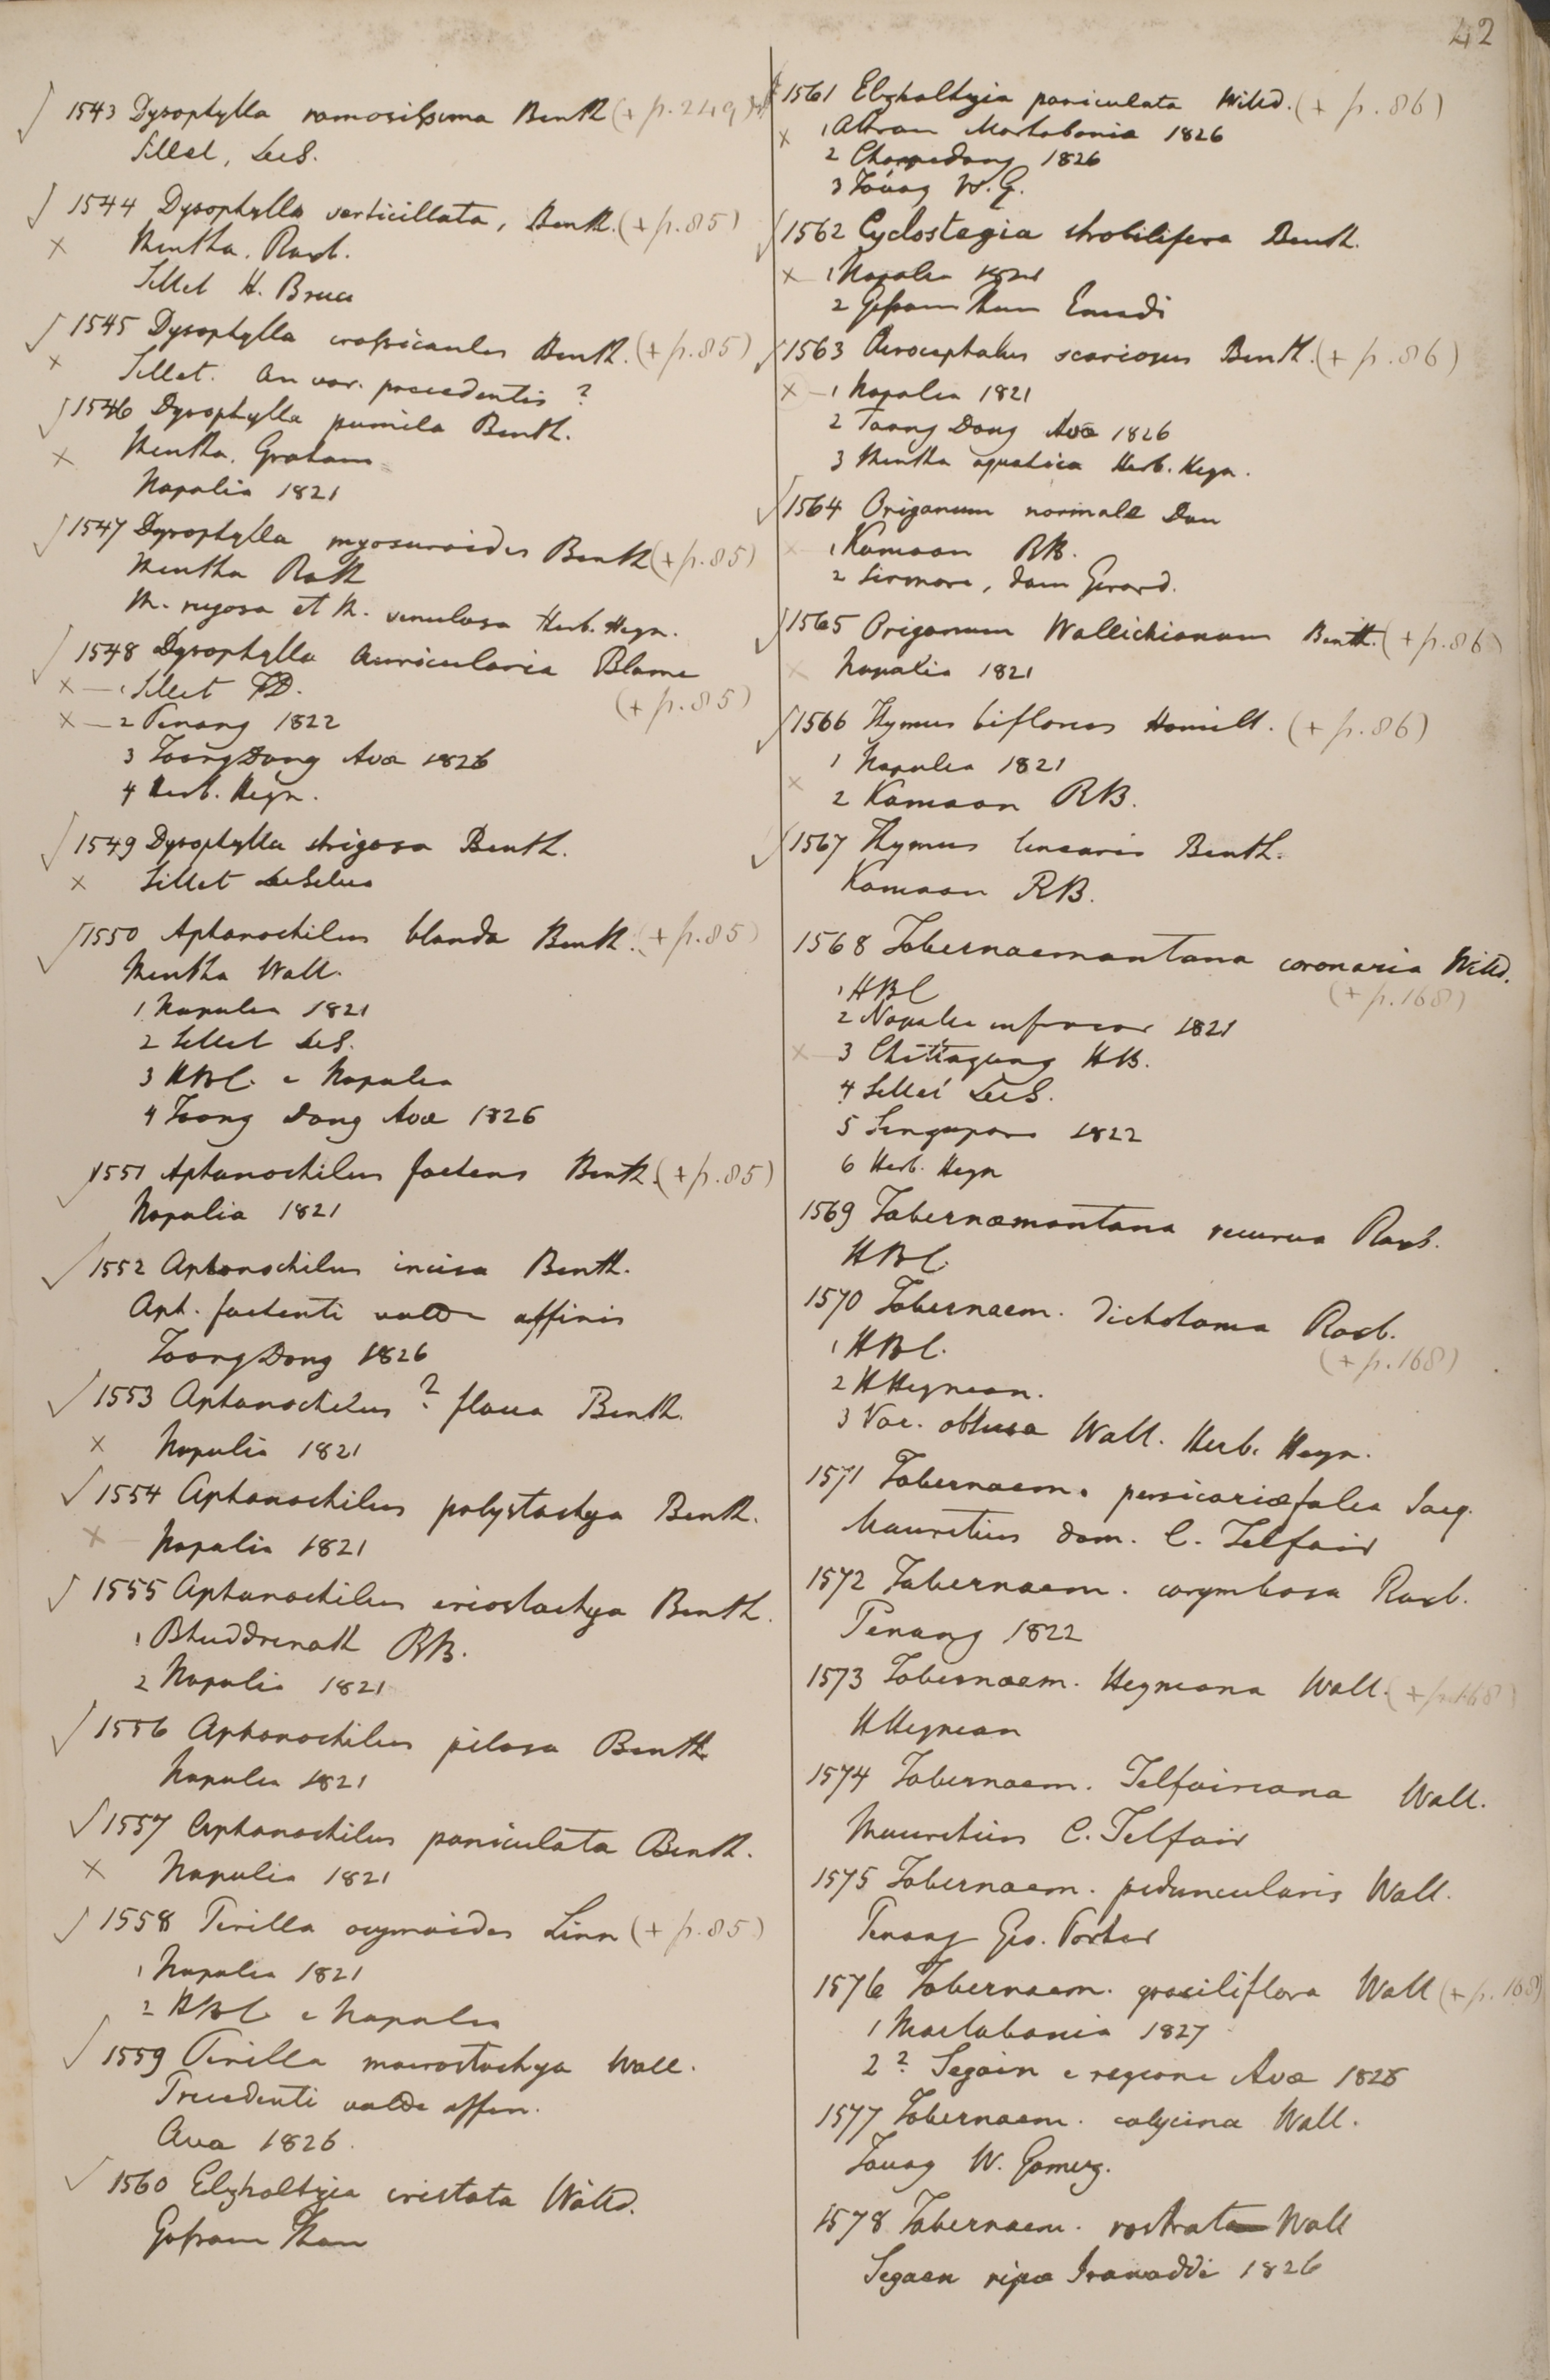 42
1543 Dysophylla ramosissima Benth (+ p. 249)
Sillet, DeS.
1544 Dysophylla verticillata, Benth. (+ p. 85)
Mentha. Roxb.
Sillet H. Bruce
1545 Dysophylla crassicaulis Benth. (+ p. 85)
Sillet. An var. precedentis ?
1546 Dysophylla pumila Benth.
Mentha. Graham
Napalia 1821
1547 Dysophylla myosuroides Benth (+ p. 85)
Mentha Roth
M. rugosa et M. venulosa Herb. Heyn.
1548 Dysophylla Auricularia Blume
(+ p. 85)
1 Sillet FD.
2 Penang 1822
3 Toong Dong Ava 1826
4 Herb. Heyn.
1549 Dysophylla strigosa Benth.
Sillet DeSilva
1550 Aphanochilus blanda Benth. (+ p. 85)
Mentha Wall.
1 Napalia 1821
2 Sillet DeS.
3 HBC. e Napalia
4 Toong Dong Ava 1826
1551 Aphanochilus foetens Benth. (+ p. 85)
Napalia 1821
1552 Aphanochilus incisa Benth.
Aph. foetenti valde affinis
Toong Dong 1826
1553 Aphanochilus ? flava Benth.
Napalia 1821
1554 Aphanochilus polystachya Benth.
Napalia 1821
1555 Aphanochilus eriostachya Benth.
1 Bhuddrinath RB.
2 Napalia 1821
1556 Aphanochilus pilosa Benth
Napalia 1821
1557 Aphanochilus paniculata Benth.
Napalia 1821
1558 Perilla ocymoides Linn (+ p. 85)
1 Napalia 1821
2 HBC e Napalia
1559 Perilla macrostachya Wall.
Precedenti valde affin.
Ava 1826.
1560 Elsholtzia cristata Willd.
Gossam Than
1561 Elsholtzia paniculata Willd. (+ p. 86)
1 Attran Martabania 1826
2 Chappedong 1826
3 Tavoy W. G.
1562 Cyclostegia strobilifera Benth.
1 Napalia 1821
2 Gossam Than Emodi
1563 Acrocephalus scariosus Benth. (+ p. 86)
1 Napalia 1821
2 Toong Dong Ava 1826
3 Mentha aquatica Herb. Heyn.
1564 Origanum normale Don
1 Kamaon RB.
2 Sirmore, dom Gerard.
1565 Origanum Wallichianum Benth. (+ p. 86)
Napalia 1821
1566 Thymus biflorus Hamilt. (+ p. 86)
1 Napalia 1821
2 Kamaon RB.
1567 Thymus linearis Benth.
Kamaon RB.
1568 Tabernaemontana coronaria Willd.
(+ p. 168)
1 HBC
2 Napalia inferior 1821
3 Chittagong HB.
4 Sillet DeS.
5 Singapore 1822
6 Herb. Heyn
1569 Tabernæmontana recurva Roxb.
HBC.
1570 Tabernaem. dichotoma Roxb.
(+ p. 168)
1 HBC.
2 HHeynean.
3 Var. obtusa Wall. Herb. Heyn.
1571 Tabernaem. persicariæfolia Jacq.
Mauritius dom. C. Telfair
1572 Tabernaem. corymbosa Roxb.
Penang 1822
1573 Tabernaem. Heyneana Wall. (+ p. 168)
HHeynean
1574 Tabernaem. Telfairiana Wall.
Mauritius C. Telfair
1575 Tabernaem. peduncularis Wall.
Penang Geo. Porter
1576 Tabernaem. graciliflora Wall (+ p. 168)
1 Martabania 1827
2 ? Segain e regione Ava 1826
1577 Tabernaem. calycina Wall.
Tavoy W. Gomez.
1578 Tabernaem. rostrata Wall
Segaen ripa Irawaddi 1826